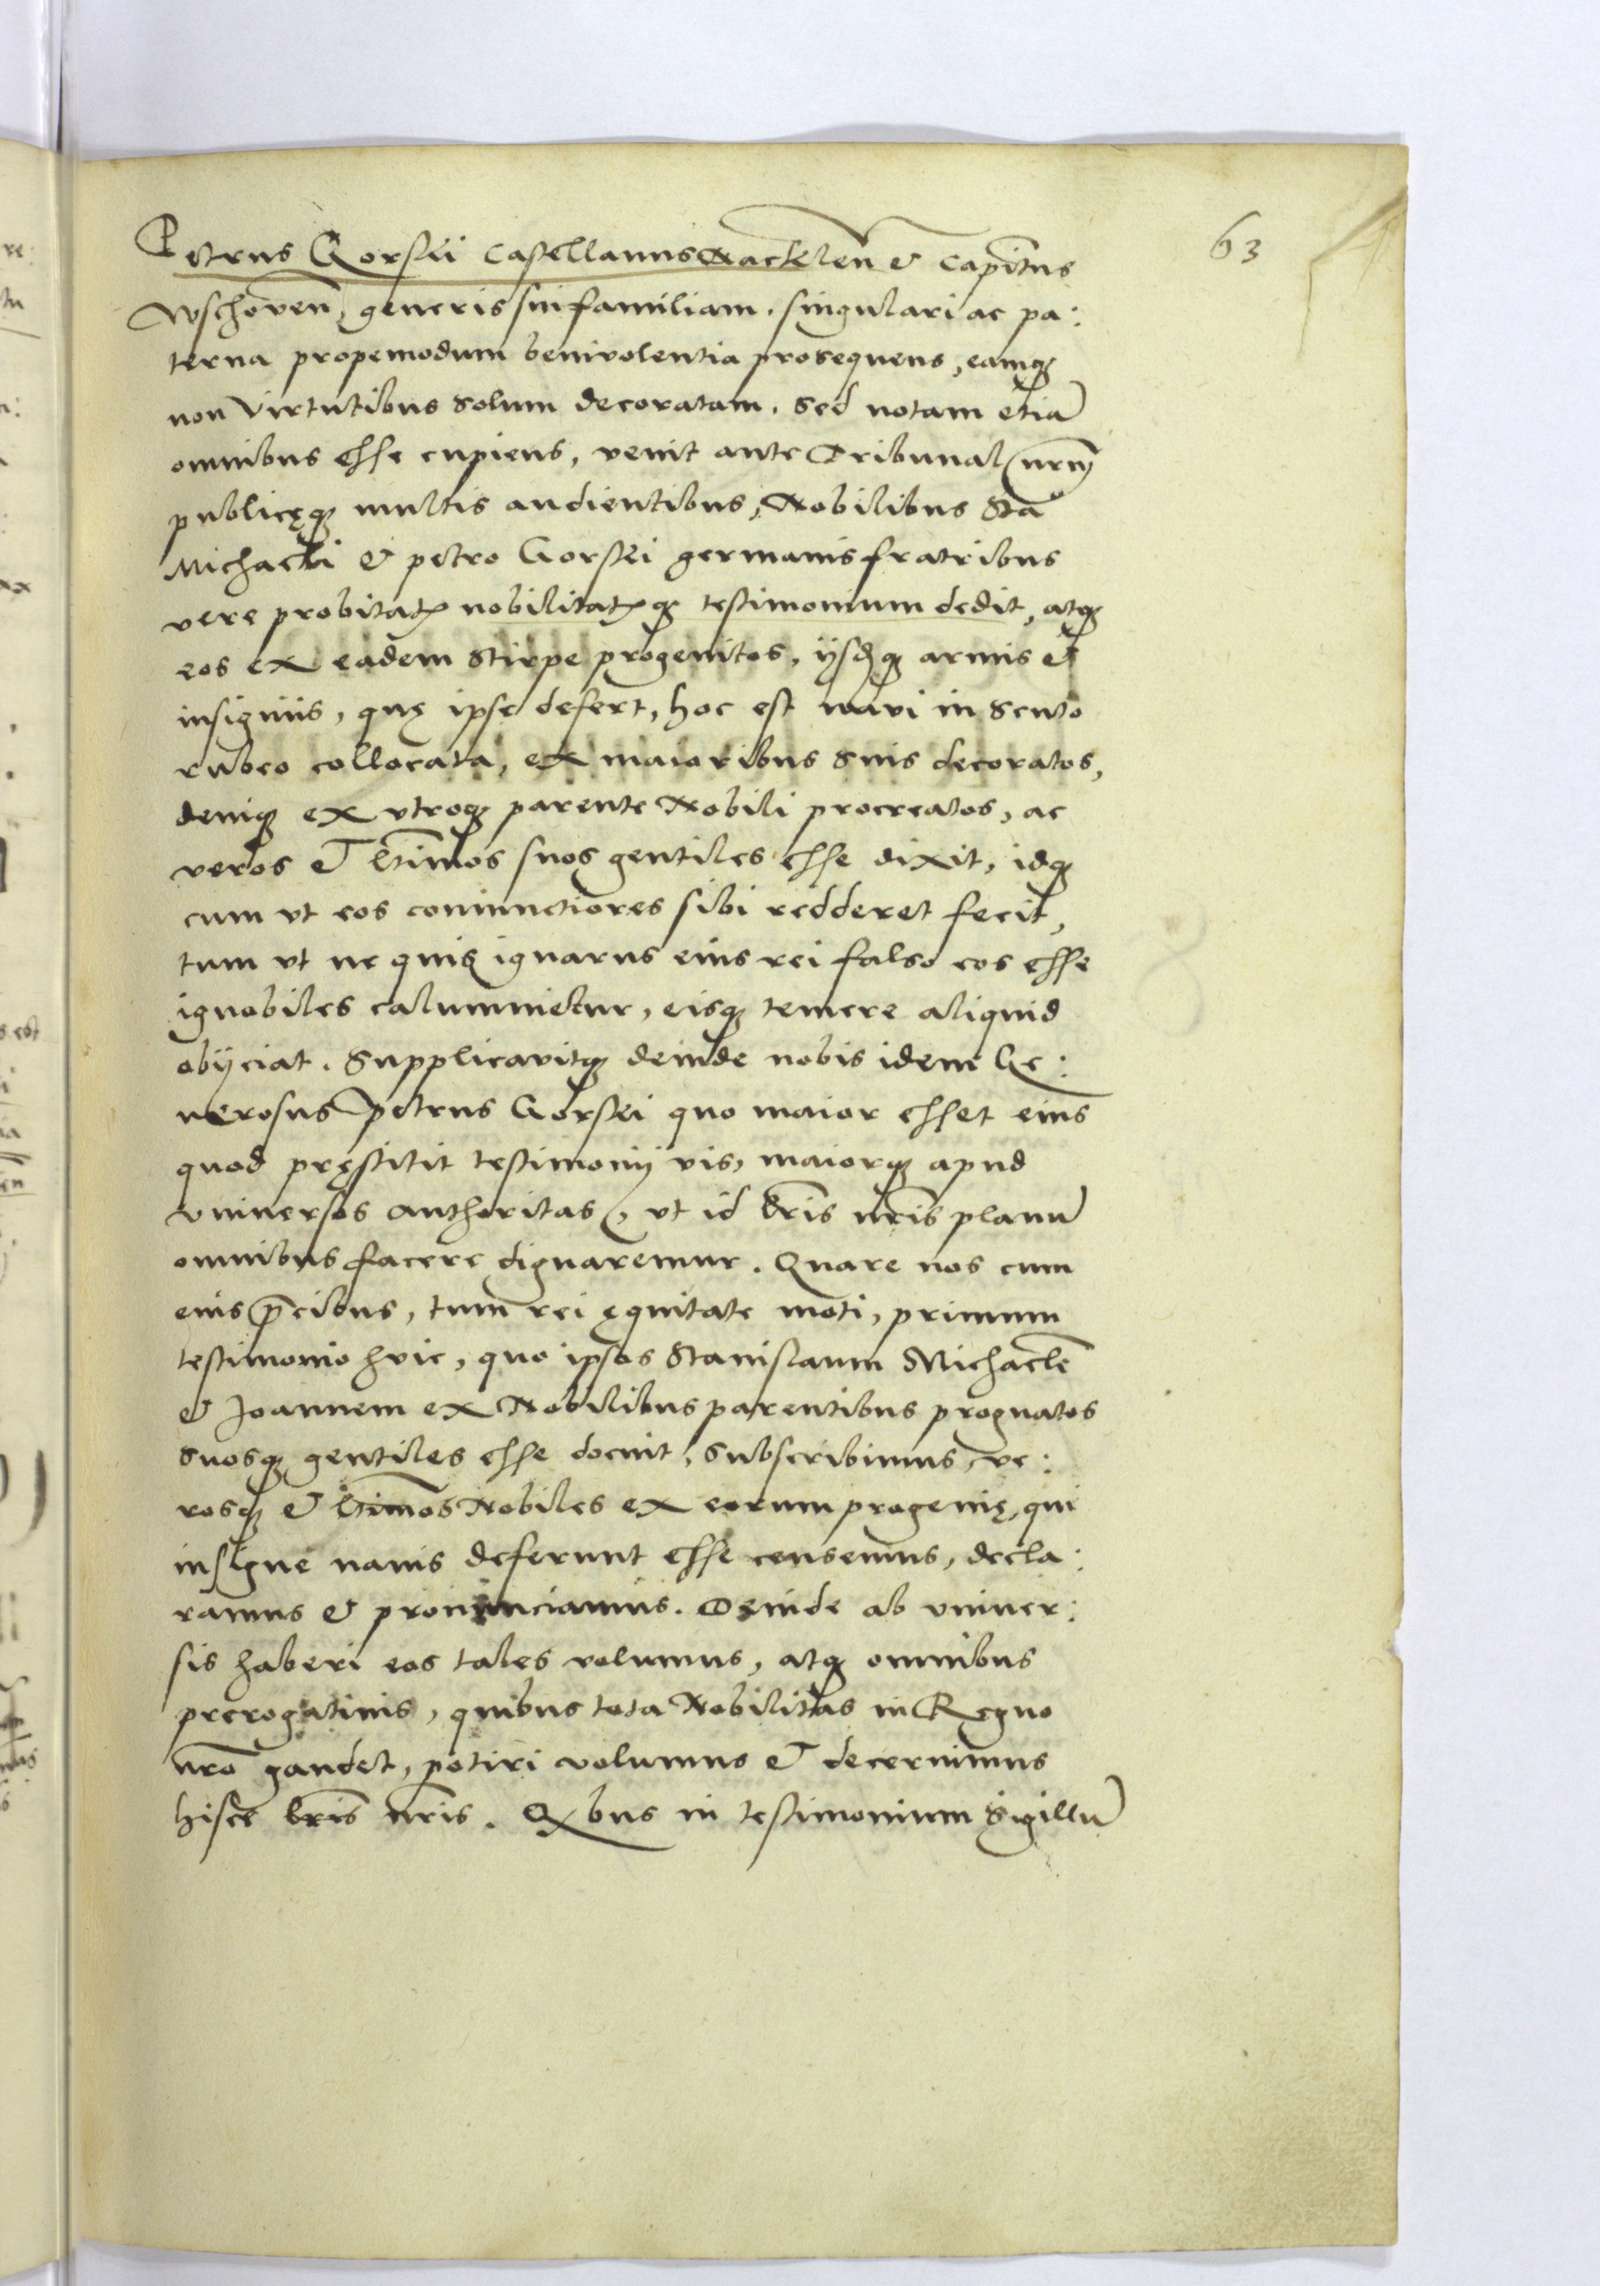 63
Petrus Gorski Castellanus Nacklen̄ & Capit̄nus
Wschoven̄, generis sui familiam. singulari ac pa:
terna propemodum benivolentia prosequens, eamqꝫ
non virtutibus solum decoratam. sed notam etiā
omnibus esse cupiens, venit ante Tribunal nr̄m
publicęqꝫ multis audientibus, Nobilibus Sta
Michaeli & petro Gorski germanis fratribus
vere probitatꝭ nobilitatꝭqꝫ testimonium dedit, atqꝫ
eos ex eadem Stirpe progenitos, ijsdqꝫ armis &
insigniis, quę ipse defert, hoc est navi in scuto
rubeo collocata, ex maioribus suis decoratos,
deniqꝫ ex vtroqꝫ parente Nobili procreatos, ac
veros & ltīmos suos gentiles esse dixit, idqꝫ
cum vt eos coniunctiores sibi redderet fecit,
tum vt ne quis ignarus eius rei falso eos esse
ignobiles calumnietur, eisqꝫ temere aliquid
obijciat. Supplicavitqꝫ deinde nobis idem Ge:
nerosus Petrus Gorski quo maior esset eius
quod pręstitit testimonij vis, maiorqꝫ apud
vniversos authoritas, vt id lr̄is nr̄is planū
omnibus facere dignaremur. Quare nos cum
eius p̄cibus, tum rei ęquitate moti, primum
testimonio huic, quo ipsos Stanislaum Michaelē
& Joannem ex Nobilibus parentibus prognatos
suosqꝫ gentiles esse docuit, subscribimus, ve:
rosqꝫ & ltīmos Nobiles ex eorum progenię, qui
insigne navis deferunt esse censemus, decla:
ramus & pronunciamus. Deinde ab vniver:
sis haberi eos tales volumus, atqꝫ omnibus
prerogativis, quibus tota Nobilitas in Regno
nr̄o gaudet, potiri volumus & decernimus
hisce lr̄is nr̄is. Qꝫbus in testimonium Sigillū